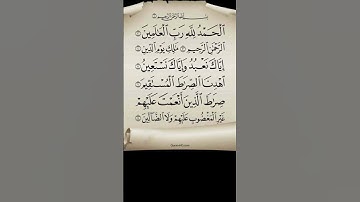 بِسْمِ اللَّهِ الرَّحْمَٰنِ الرَّحِيمِ
الْحَمْدُ لِلَّهِ رَبِّ الْعَالَمِينَ
الرَّحْمَٰنِ الرَّحِيمِ مَالِكِ يَوْمِ الدِّينِ
إِيَّاكَ نَعْبُدُ وَإِيَّاكَ نَسْتَعِينُ
اهْدِنَا الصِّرَاطَ الْمُسْتَقِيمَ
صِرَاطَ الَّذِينَ أَنْعَمْتَ عَلَيْهِمْ
غَيْرِ الْمَغْضُوبِ عَلَيْهِمْ وَلَا الضَّالِّينَ